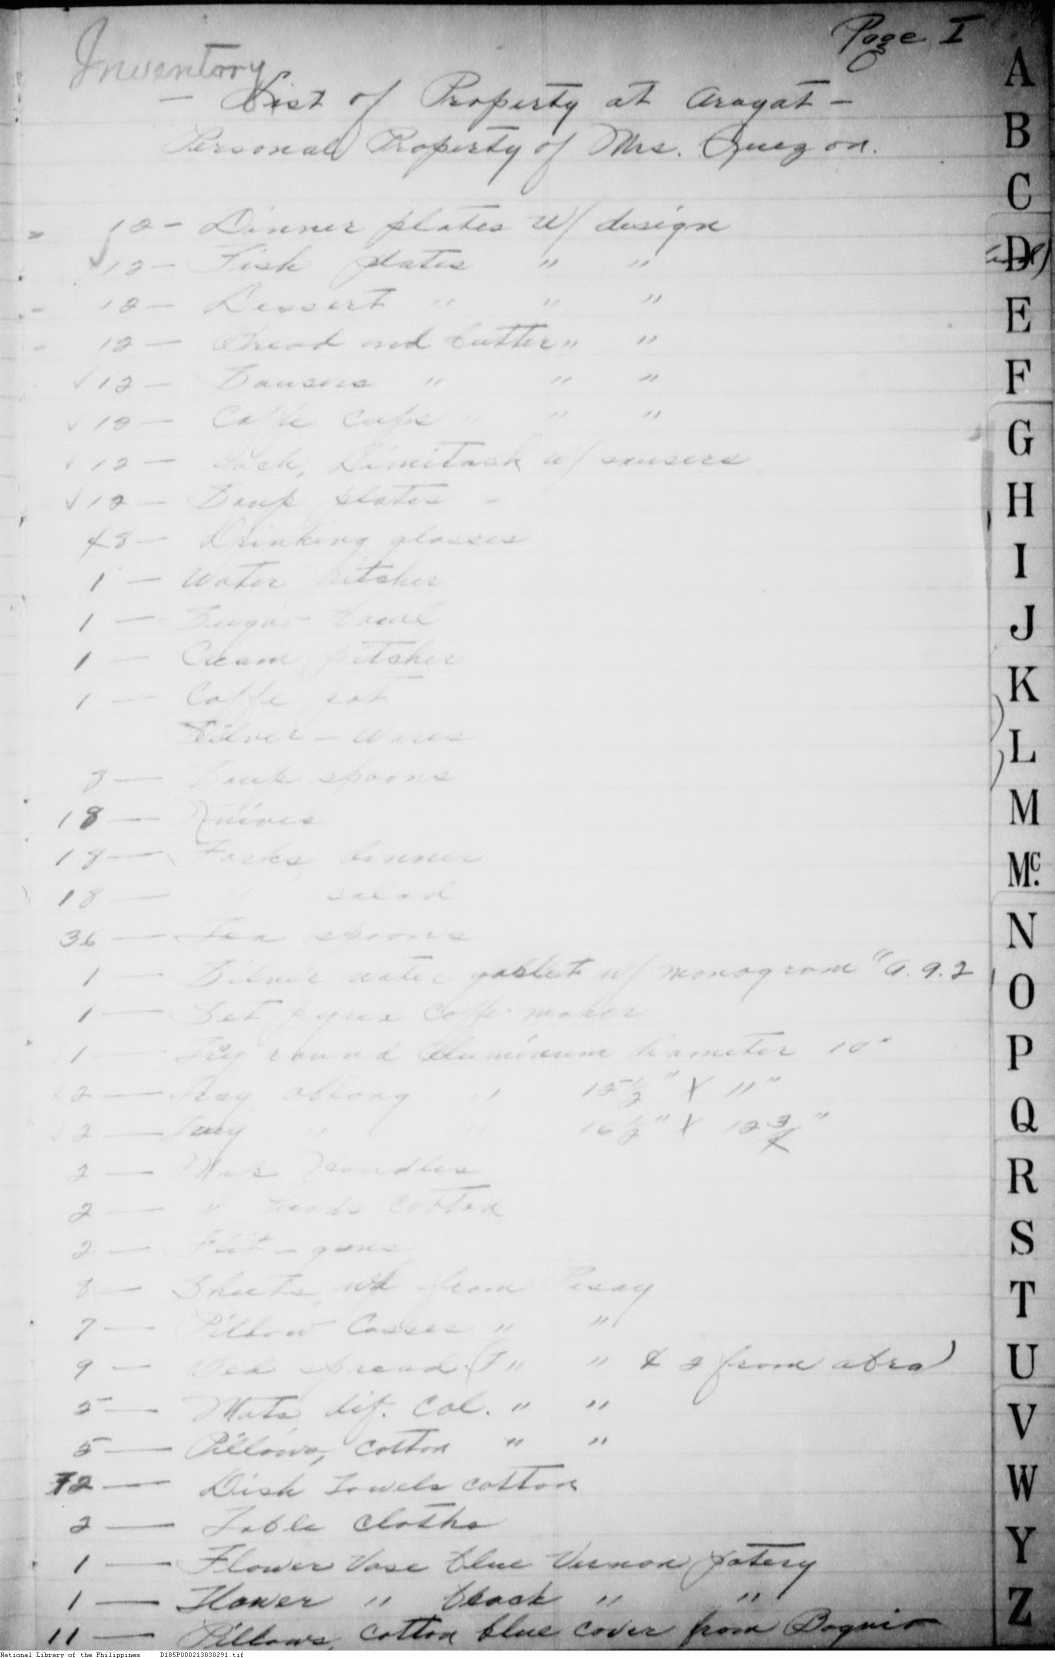 Page I
Inventory
- List of Property at Arayat -
Personal Property of Mrs. Quezon.
12 - Dinner plates w/ design
12 - Fish plates " "
12 - Dessert " " "
12 - Bread and butter " "
12 - Sausers " " "
12 - Coffe cups " " "
12 - Dimitash w/ sausers
12 - Soup plates -
48 - Drinking glasses
1 - Water pitcher
1 - Sugar bowl
1 - Cream pitcher
1 - Coffe pot
Silver - wares
8 - spoons
18 - Knives
18 - Forks, dinner
18 - " salad
36 - Tea spoons
1 - Silver water goblet w/ monogram "a.
1 - Set pyrex Coffe maker
1 - Tray round Aluminum diameter 10"
2 - Tray oblong " 15 1/2" X 11"
2 - Tray " " 16 1/2" X 12 3/4"
2 - Handles
2 - " heads cotton
2 - Flit - guns
8 - Sheets, from Pasay
7 - Pillow Casses " "
9 - Bed spread (7 " " & 2 from abra)
5 - Mats dif. Col. " "
5 - Pillows, cotton " "
72 - Dish Towels cotton
2 - Table cloths
1 - Flower Vase blue Vernon potery
1 - Flower " black " "
11 - Pillows, cotton blue cover from Baguio
A
B
C
D
E
F
G
H
I
J
K
L
M
Mc.
N
O
P
Q
R
S
T
U
V
W
Y
Z
National Library of the Philippines D185P000213830291.tif